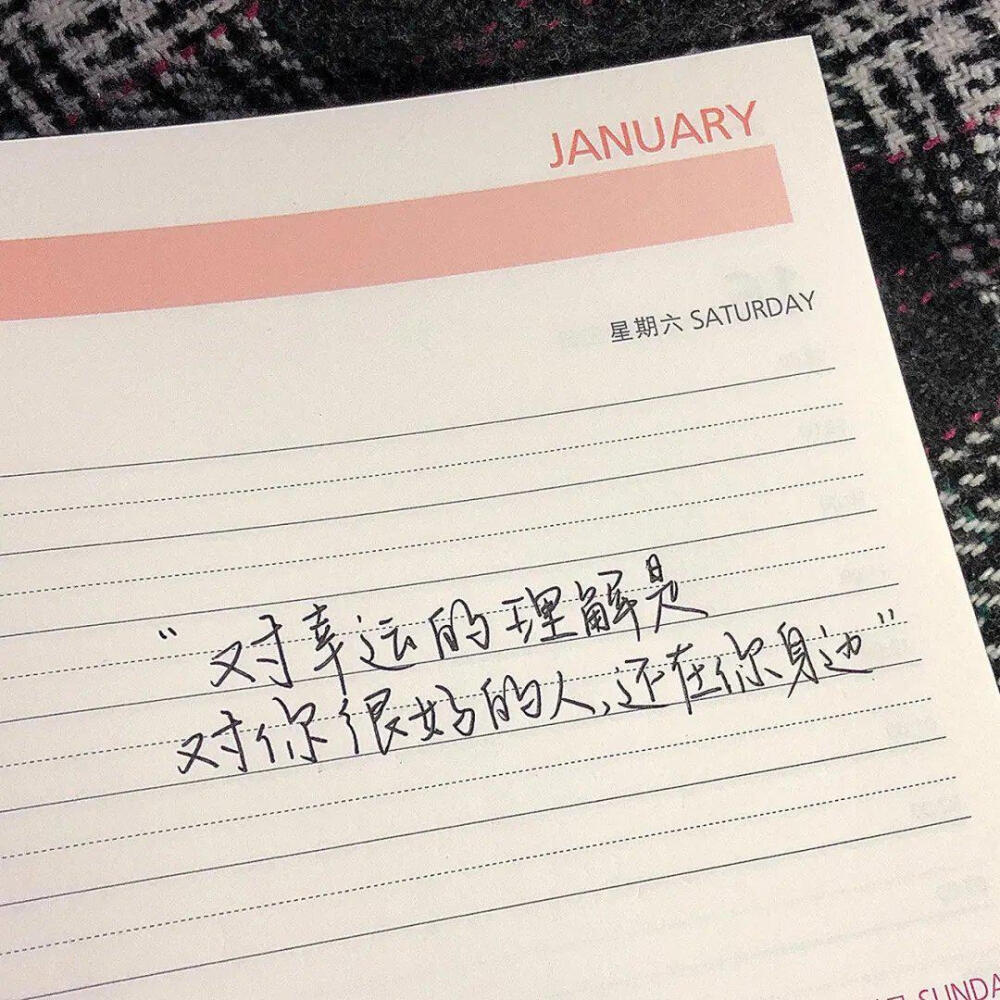 JANUARY
星期六 SATURDAY
“对幸运的理解是
对你很好的人,还在你身边”